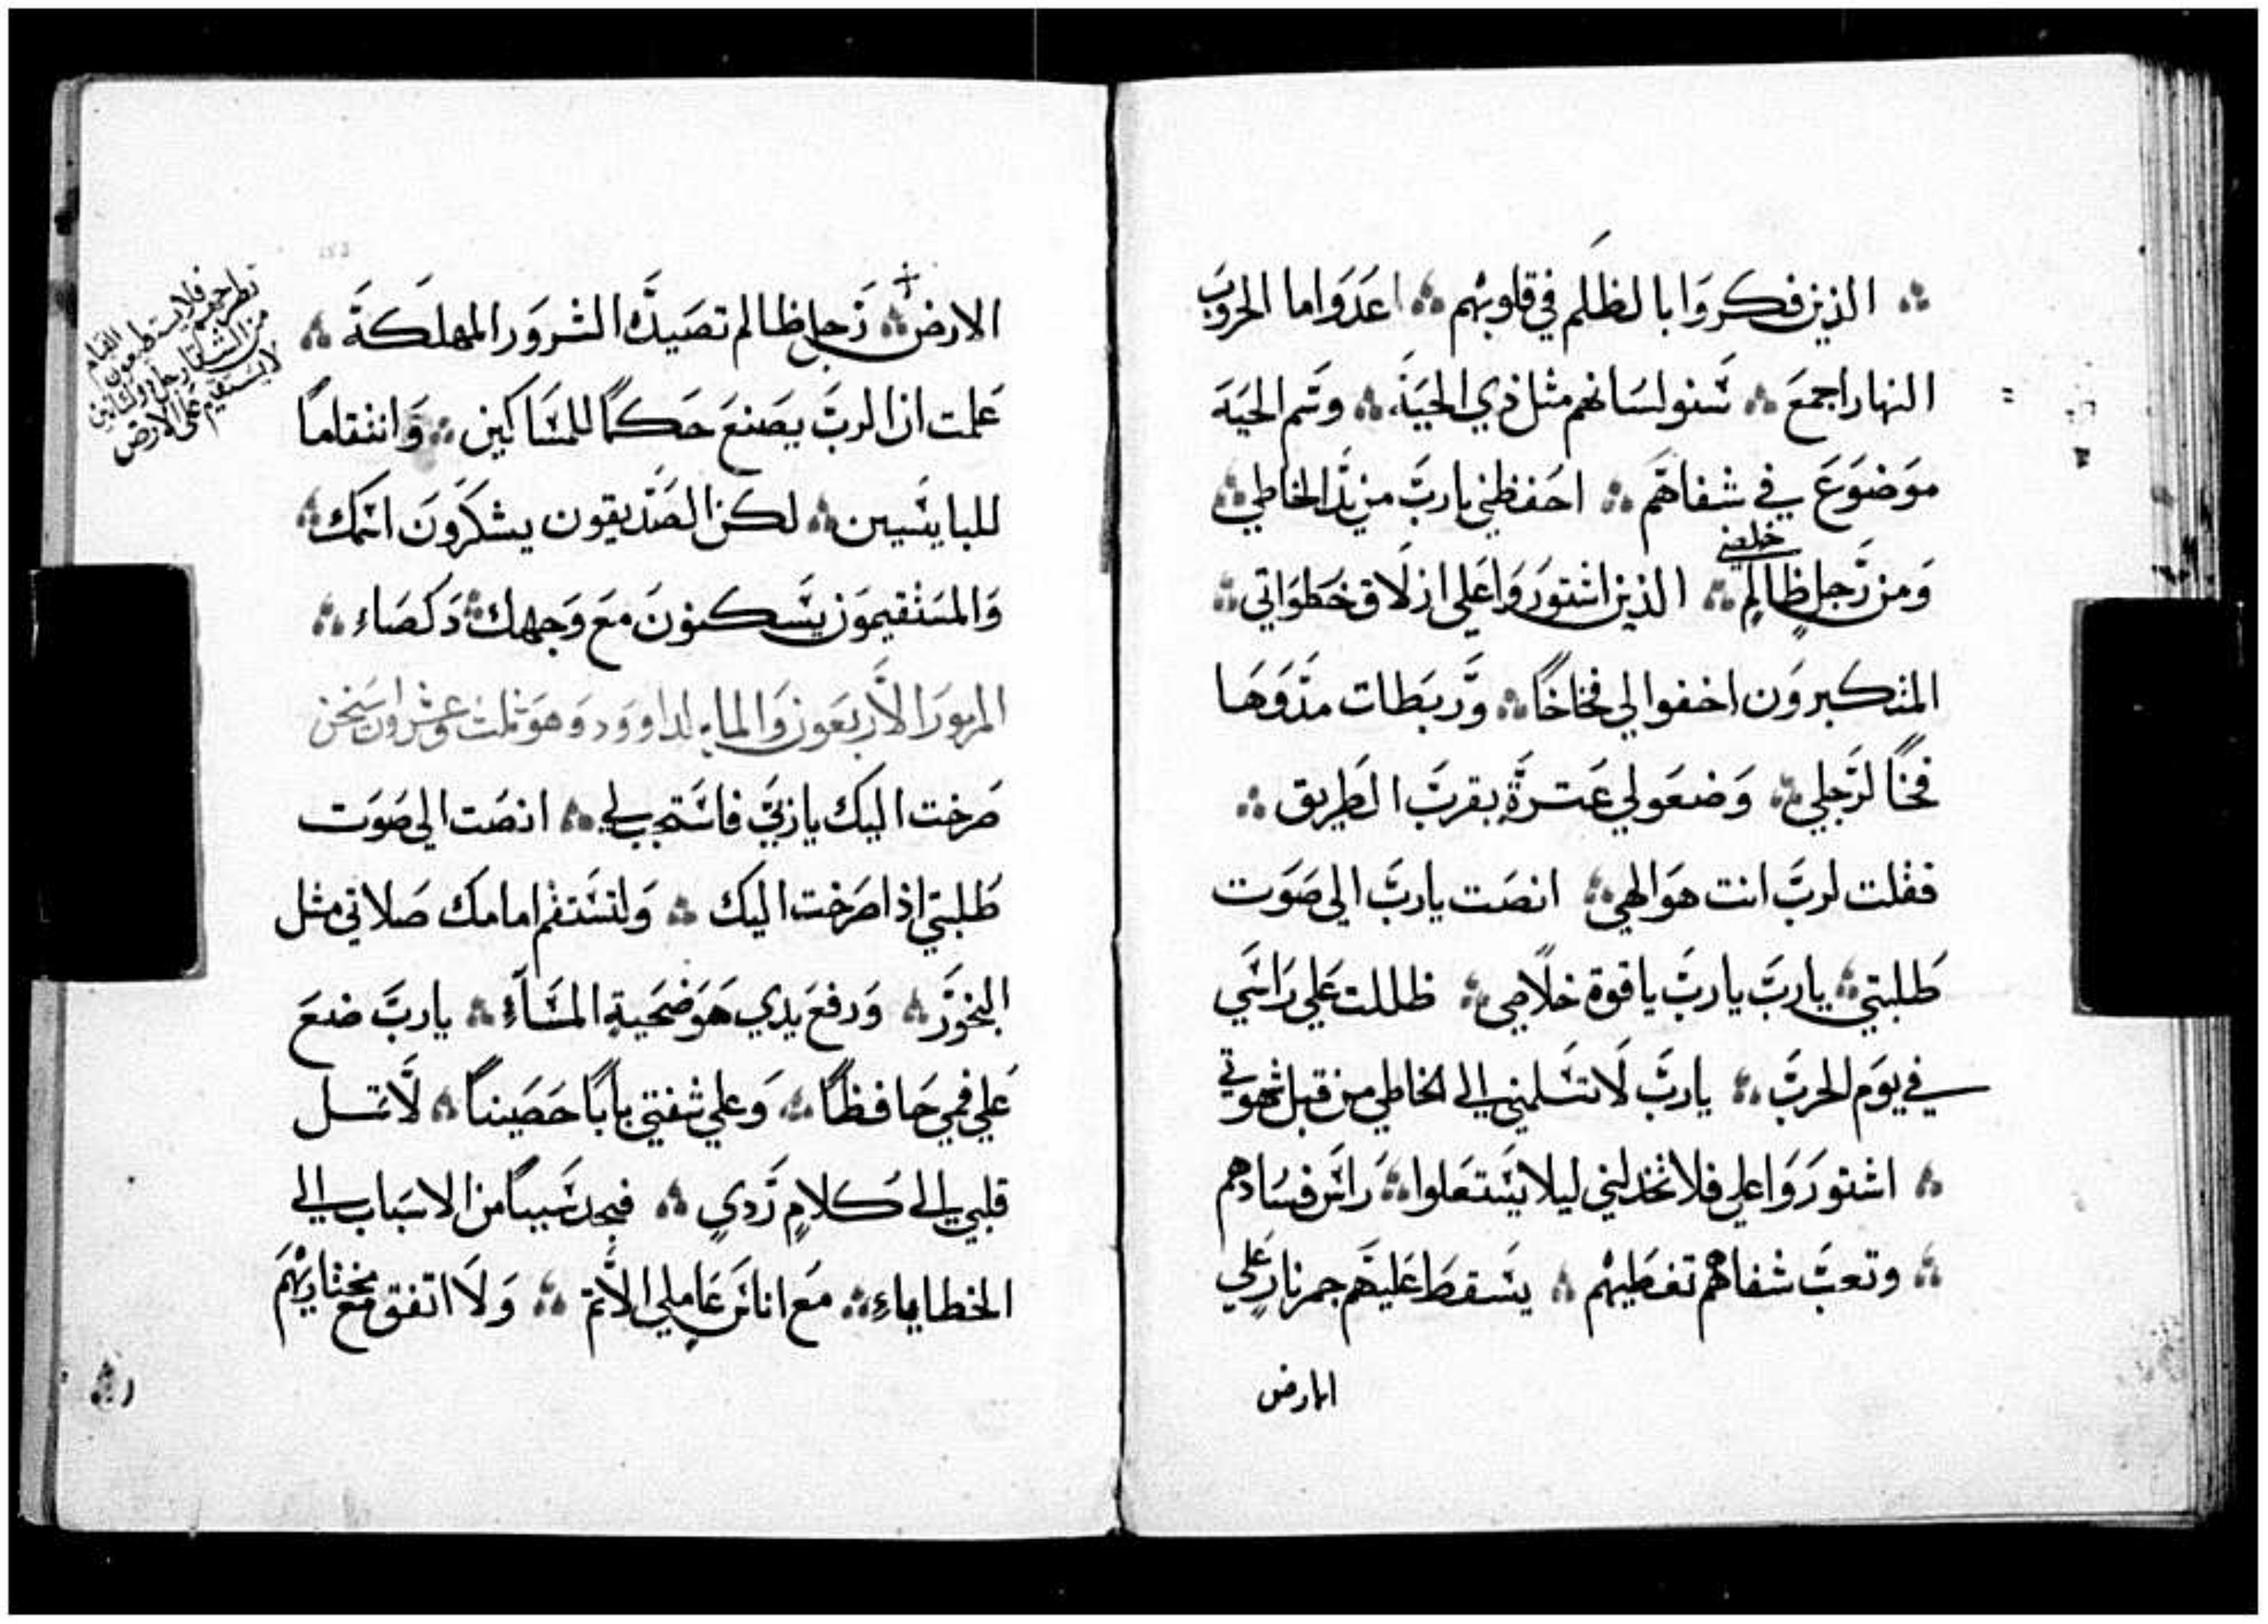 الذين فكروا بالظلم في قلوبهم اعدوا ما الحروب
النهار اجمع سنو لسانهم مثل ذي الحية وسم الحية
موضوع في شفاهم احفظني يارب من يد الخاطي
خلصني
ومن رجل ظالم الذين اشتوروا على ازلاق خطواتي
المتكبرون اخفوا لي فخاخا وربطات مدوها
فخا لرجلي وضعو لي عترة بقرب الطريق
فقلت لرب انت هو الهي انصت يارب الى صوت
طلبتي يارب يارب يارب ياقوة خلاصي ظللت على راسي
في يوم الحرب يارب لا تسلمني الى الخاطي من قبل شهوتي
اشتوروا علي فلا تخذلني ليلا يستعلوا راس فسادهم
وتعب شفاهم تغطيهم يسقط عليهم جمر نار على
الارض
الارض رجل ظالم تصيده الشرور المهلكة
علمت ان الرب يصنع حكما للمساكين وانتقاما
للبايسيين لكن الصديقون يشكرون اسمك
والمستقيمون يسكنون مع وجهك دكصاء
المزمور الاربعون والمايه لداوود وهو ثلث وعشرون ستخن
صرخت اليك ياربي فاستجب لي انصت الى صوت
طلبتي اذا صرخت اليك ولتستقم امامك صلاتي مثل
البخور ورفع يدي هو ضحية المساء يارب ضع
على فمي حافظا وعلى شفتي بابا حصينا لا تمل
قلبي الى كلام ردي فيجد سببا من الاسباب الى
الخطاياء مع اناس عاملي الاثم ولا اتفق مع مختاريهم
فلا يستطيعون القيام
لا يستقيم على الارض